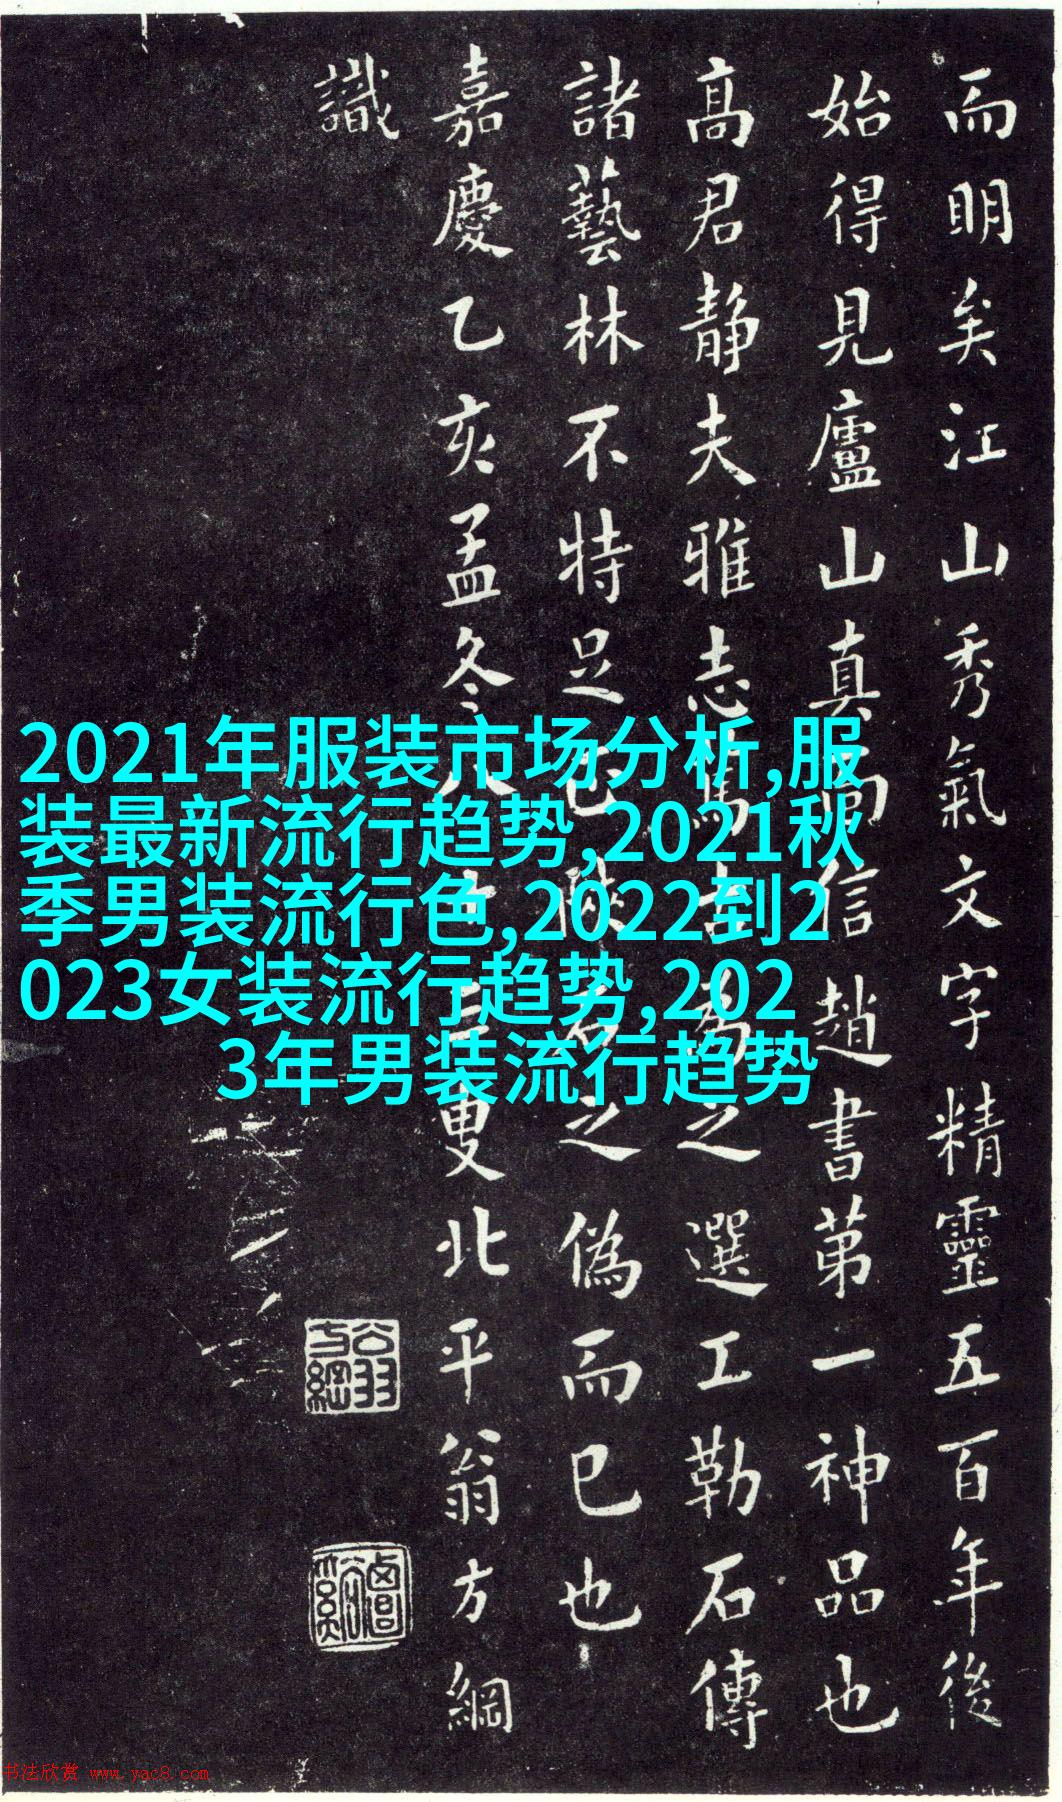 而明矣江山秀氣文字精靈五百年後
始得見廬山真面信趙書第一神品也
高君靜夫雅志篤古為之選工勒石傳
諸藝林不特足已之偽而已也
嘉慶乙亥孟冬八十叟北平翁方綱
識
翁方綱
2021年服装市场分析,服
装最新流行趋势,2021秋
季男装流行色,2022到2
023女装流行趋势,202
3年男装流行趋势
书法欣赏 www.yac8.com